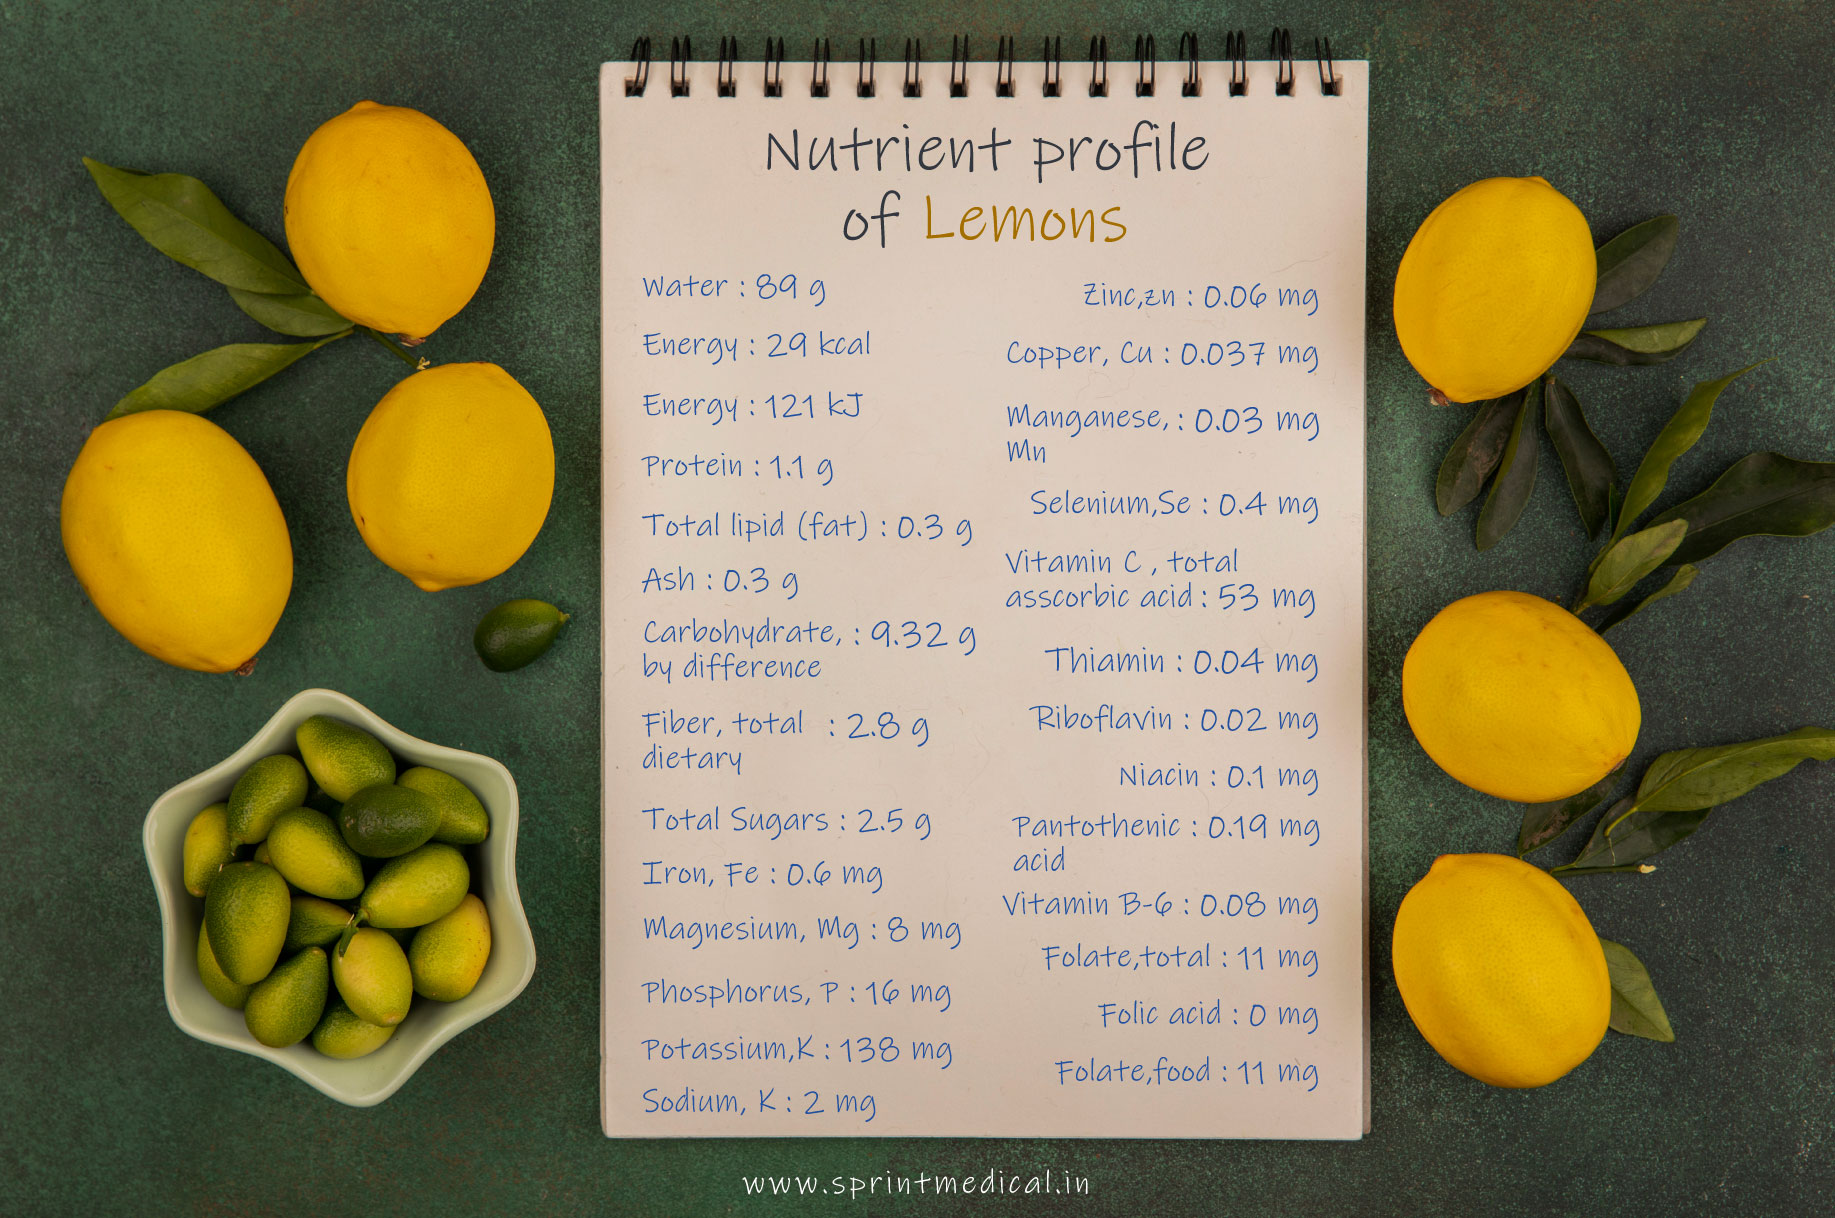 Nutrient profile
of Lemons
Water : 89 g
Energy : 29 kcal
Energy : 121 kJ
Protein : 1.1 g
Total lipid (fat) : 0.3 g
Ash : 0.3 g
Carbohydrate, : 9.32 g
by difference
Fiber, total : 2.8 g
dietary
Total Sugars : 2.5 g
Iron, Fe : 0.6 mg
Magnesium, Mg : 8 mg
Phosphorus, P : 16 mg
Potassium,K : 138 mg
Sodium, K : 2 mg
Zinc,zn : 0.06 mg
Copper, Cu : 0.037 mg
Manganese, : 0.03 mg
Mn
Selenium,Se : 0.4 mg
Vitamin C , total
asscorbic acid : 53 mg
Thiamin : 0.04 mg
Riboflavin : 0.02 mg
Niacin : 0.1 mg
Pantothenic : 0.19 mg
acid
Vitamin B-6 : 0.08 mg
Folate,total : 11 mg
Folic acid : 0 mg
Folate,food : 11 mg
www.sprintmedical.in